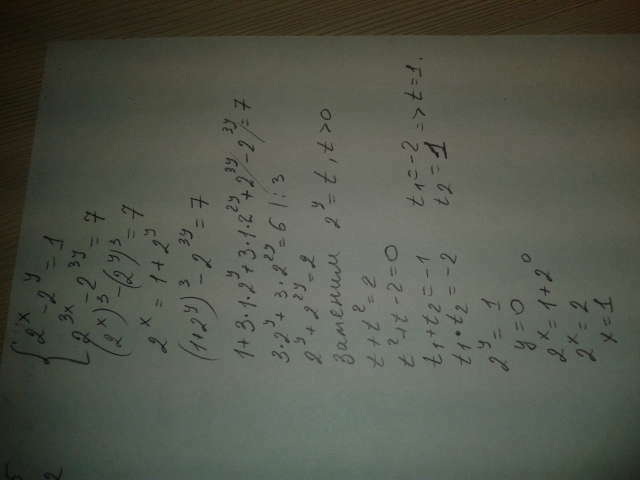 {2^x - 2^y = 1
2^{3x} - 2^{3y} = 7
(2^x)^3 - (2^y)^3 = 7
2^x = 1 + 2^y
(1+2^y)^3 - 2^{3y} = 7
1 + 3·1·2^y + 3·1·2^{2y} + 2^{3y} - 2^{3y} = 7
3·2^y + 3·2^{2y} = 6 |:3
2^y + 2^{2y} = 2
Заменим 2^y = t, t > 0
t + t^2 = 2
t^2 + t - 2 = 0
t_1 + t_2 = -1
t_1 · t_2 = -2
t_1 = -2
t_2 = 1 => t = 1.
2^y = 1
y = 0
2^x = 1 + 2^0
2^x = 2
x = 1